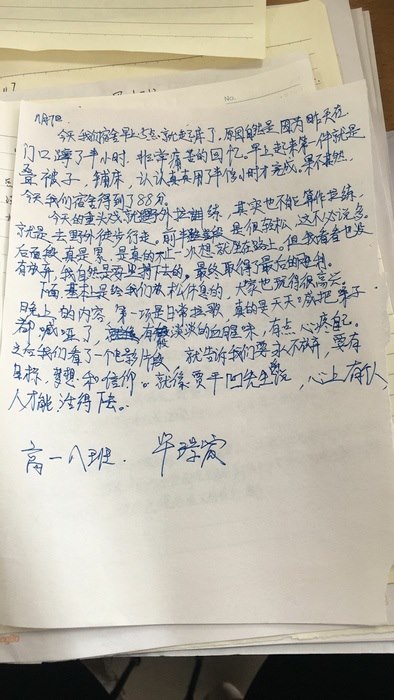 今天我们宿舍早上5点就起床了，原因自然是因为昨天在
门口蹲了半小时，非常痛苦的回忆。早上起来第一件就是
叠被子，铺床，认认真真用了半个小时才完成。果不其然，
今天我们宿舍得到了88分。
今天的重头戏就野外拉练，其实也不能算作拉练，
就是去野外徒步行走。前半段是很轻松，这不必说多。
后面真是累，是真的，一次想就坐在路上。但我看看也没
有放弃，我自然是要坚持下去的。最终取得了最后的胜利。
下面基本是给我们放松休息的，大家也玩得很高兴。
晚上的内容，第一项是日常拉歌，真的是天天喊，把嗓子
都喊哑了，有淡淡的血腥味，有点心疼自己。
之后我们看了一个电影片段，就告诉我们要永不放弃，要有
目标，梦想和信仰。就像贾平凹先生说，心上有认
人才能活得下去。
高一八班.